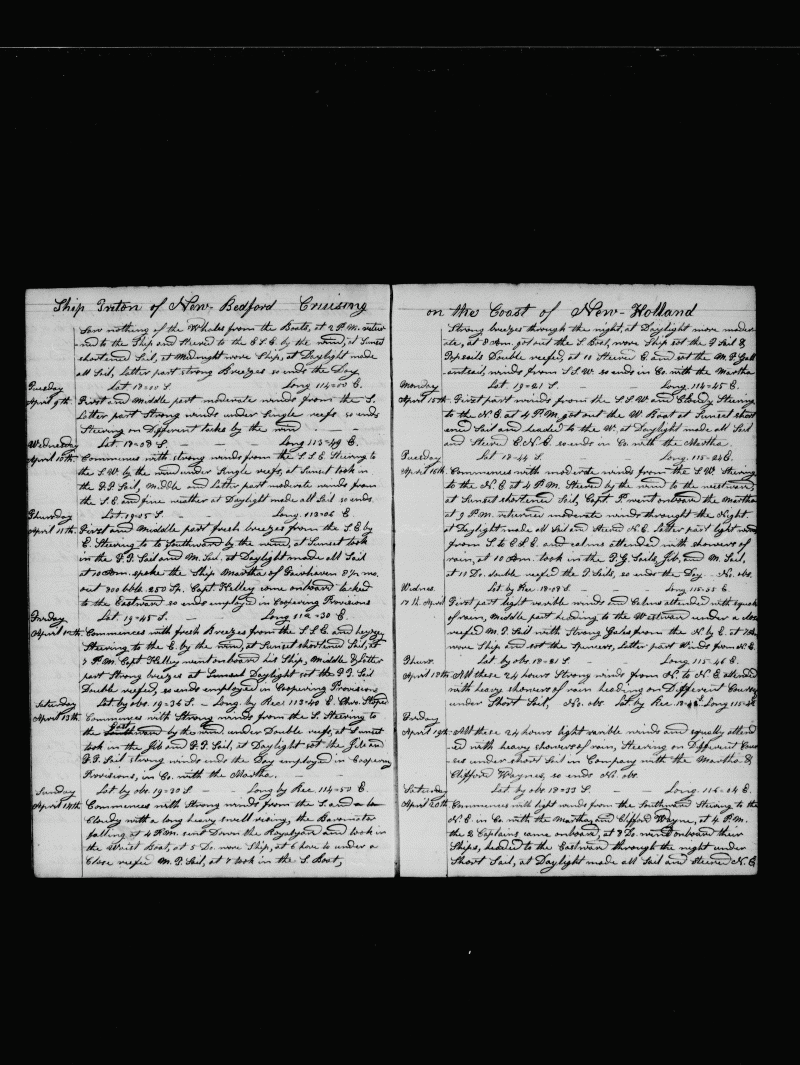 Ship Triton of New-Bedford Cruising
Saw nothing of the Whales from the Boats, at 2 P.M. retur
-ned to the Ship and Steered to the E.S.E. by the wind, at Sunset
shortened Sail, at Midnight wove Ship, at Daylight made
all Sail, Latter part strong Breezes so ends the Day.
Tuesday Lat 18=00 S. Long 114=00 E.
April 9th. First and Middle part moderate winds from the S.
Latter part Strong winds under Single reefs so ends
Steering on Different tacks by the wind
Wednesday Lat 18=08 S. Long 113=49 E.
April 10th. Commences with strong winds from the S.S.E Steering to
the S.W. by the wind under Single reefs, at Sunset took in
the F.T. Sail, Middle and Latter part moderate winds from
the S.E and fine weather at Daylight made all Sail so ends.
Thursday Lat 19=25 S. Long. 113=06 E.
April 11th. First and Middle part fresh breezes from the S.E by
E. Steering to to Southward by the wind, at Sunset took
in the F.T. Sail and M. Sail, at Daylight made all Sail
at 10 A.m. spoke the Ship Martha of Fairhaven 8½ mo.
out 300 bbls. 250 Sp. Capt Kelley came onboard tacked
to the Eastward so ends employed in Coopering Provisions
Friday Lat 19=45 S. Long 112=30 E.
April 12th Commences with fresh Breezes from the S.S.E and
Steering to the E. by the wind, at Sunset shortened Sail, at
7 P.M. Capt Kelley went onboard his Ship, Middle & Latter
part Strong breezes at Sunset Daylight set the F.T. Sail
Double reefed, so ends employed in Coopering Provisions
Saturday Lat by obs. 19=36 S. Long. by Rec. 113=40 E. Chro. Stoped
April 13th. Commences with Strong winds from the S. Steering to
the East Southward by the wind under Double reefs, at Sunset
took in the Jib and F.T. Sail, at Daylight set the Jib and
F.T. Sail strong winds ends the Day employed in Coopering
Provisions, in Co. with the Martha.
Sunday Lat by obs. 19=30 S. Long by Rec. 114=50 E.
April 14th Commences with Strong winds from the S. and a
Cloudy with a long heavy swell rising, the Barometer
falling at 4 P.M. sent Down the Royalyard and took in
the Waist Boat, at 5 Do. wore Ship, at 6 hove to under a
Close reefed M.T. Sail, at 7 took in the S. Boat,
on the Coast of New-Holland
Strong breezes through the night, at Daylight more moder
ate, at 8 A.m. got out the S. Boat, wove Ship set the F Sail &
Topsails Double reefed, at 11 Steered E. and set the M.T. Gall
antsail, winds from S.S.W. so ends in Co. with the Martha
Monday Lat 19=21 S. Long. 114=45 E.
April 15th. First part winds from the S.S.W and Cloudy Steering
to the N.E. at 4 P.M. got out the W. Boat at Sunset short
ened Sail and headed to the W. at Daylight made all Sail
and Steered E.N.E. so ends in Co with the Martha.
Tuesday Lat 18=44 S. Long. 115=24 E.
April 16th. Commences with moderate winds from the S.W. Steering
to the N.E. at 4 P.M. Steered by the wind to the westward,
at Sunset shortened Sail, Capt P. went onboard the Martha
at 9 P.M. returned moderate winds through the Night.
at Daylight made all Sail and Steered N.E. Latter part light winds
from S. to E.S.E. and calms attended with showers of
rain, at 10 A.m. took in the T.G. Sails, Jib, and M. Sail,
at 11 Do. double reefed the T. Sails, so ends the Day. No. obs.
Wednes. Lat by Rec 18=28 S. Long 115=35 E.
17th April First part light varible winds and Calms attended with squalls
of rain, Middle part heading to the Westward under a close
reefed M.T. Sail with Strong Gales from the N. by E. at 7
wove Ship and set the Spencers, Latter part Winds from N.E.
Thurs. Lat by obs 18=21 S. Long. 115=46 E.
April 18th. All these 24 hours Strong winds from N. to N.E. attended
with heavy showers of rain heading on Different Courses
under Short Sail, No. obs Lat by Rec Long 115=
Friday
April 19th. All these 24 hours light varible winds and squally attend
-ed with heavy showers of rain, Steering on Different Cour
-ses under Short Sail in Company with the Martha &
Clifford Waynes, so ends No obs.
Saturday Lat by obs 18=33 S. Long. 116=04 E.
April 20th Commences with light winds from the Southward Steering to the
N.E. in Co with the Martha and Clifford Wayne, at 4 P.M.
the 2 Captains came onboard, at 8 Do. went onboard their
Ships, headed to the Eastward through the night under
Short Sail, at Daylight made all Sail and Steered N.E.